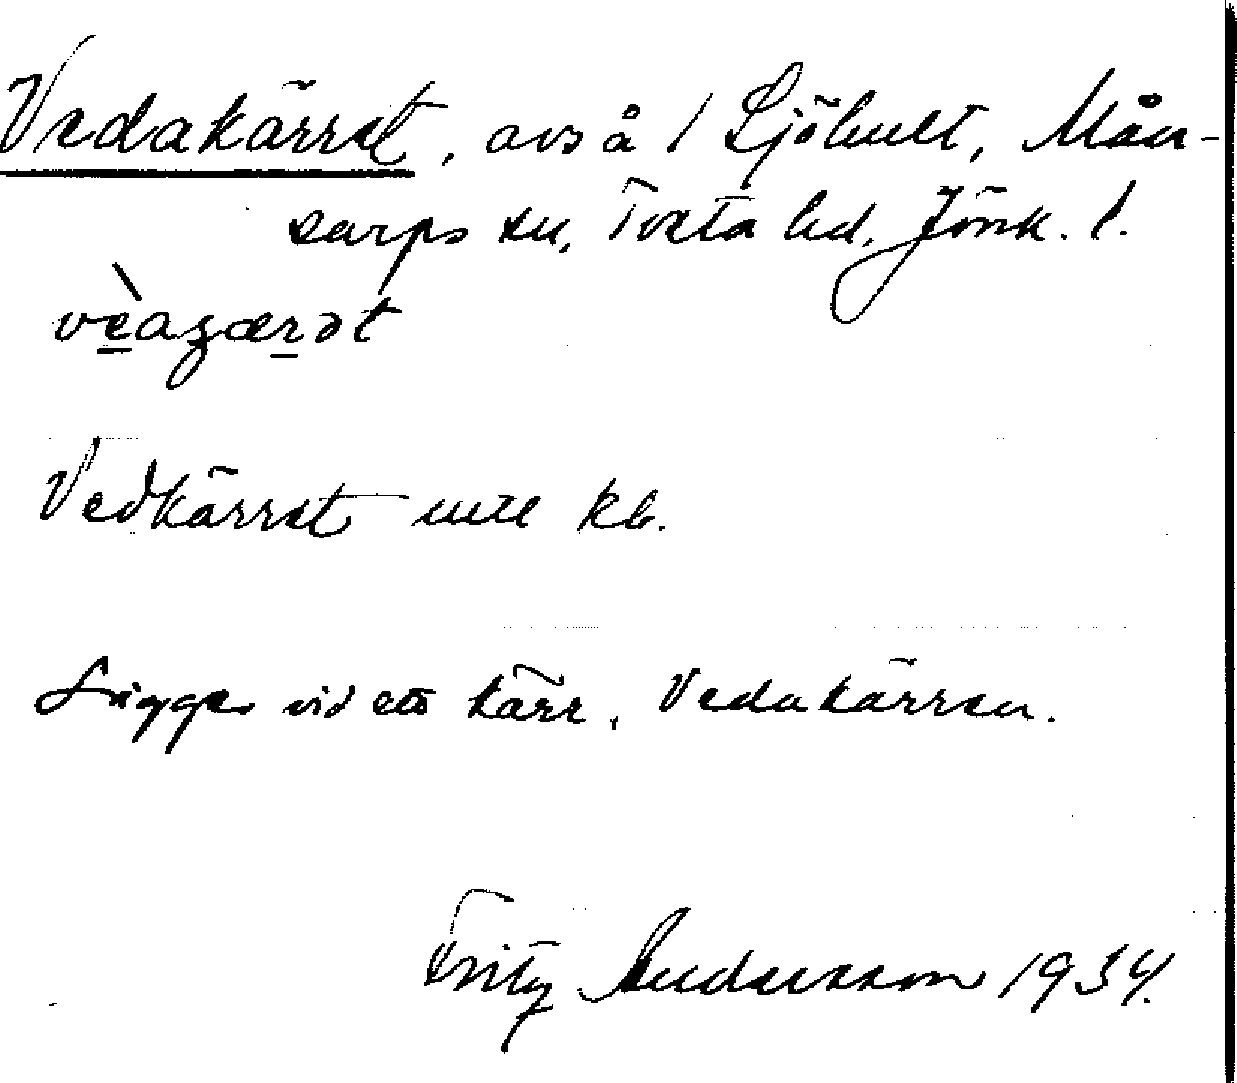 Vedakärret, avs å 1 Sjöhult, Mån-
sarps sn, Tveta hd, Jönk. l.
vèagærət
Vedkärret uttl kb.
Ligger vid ett kärr, Vedakärren.
Fritz Andersson 1934.